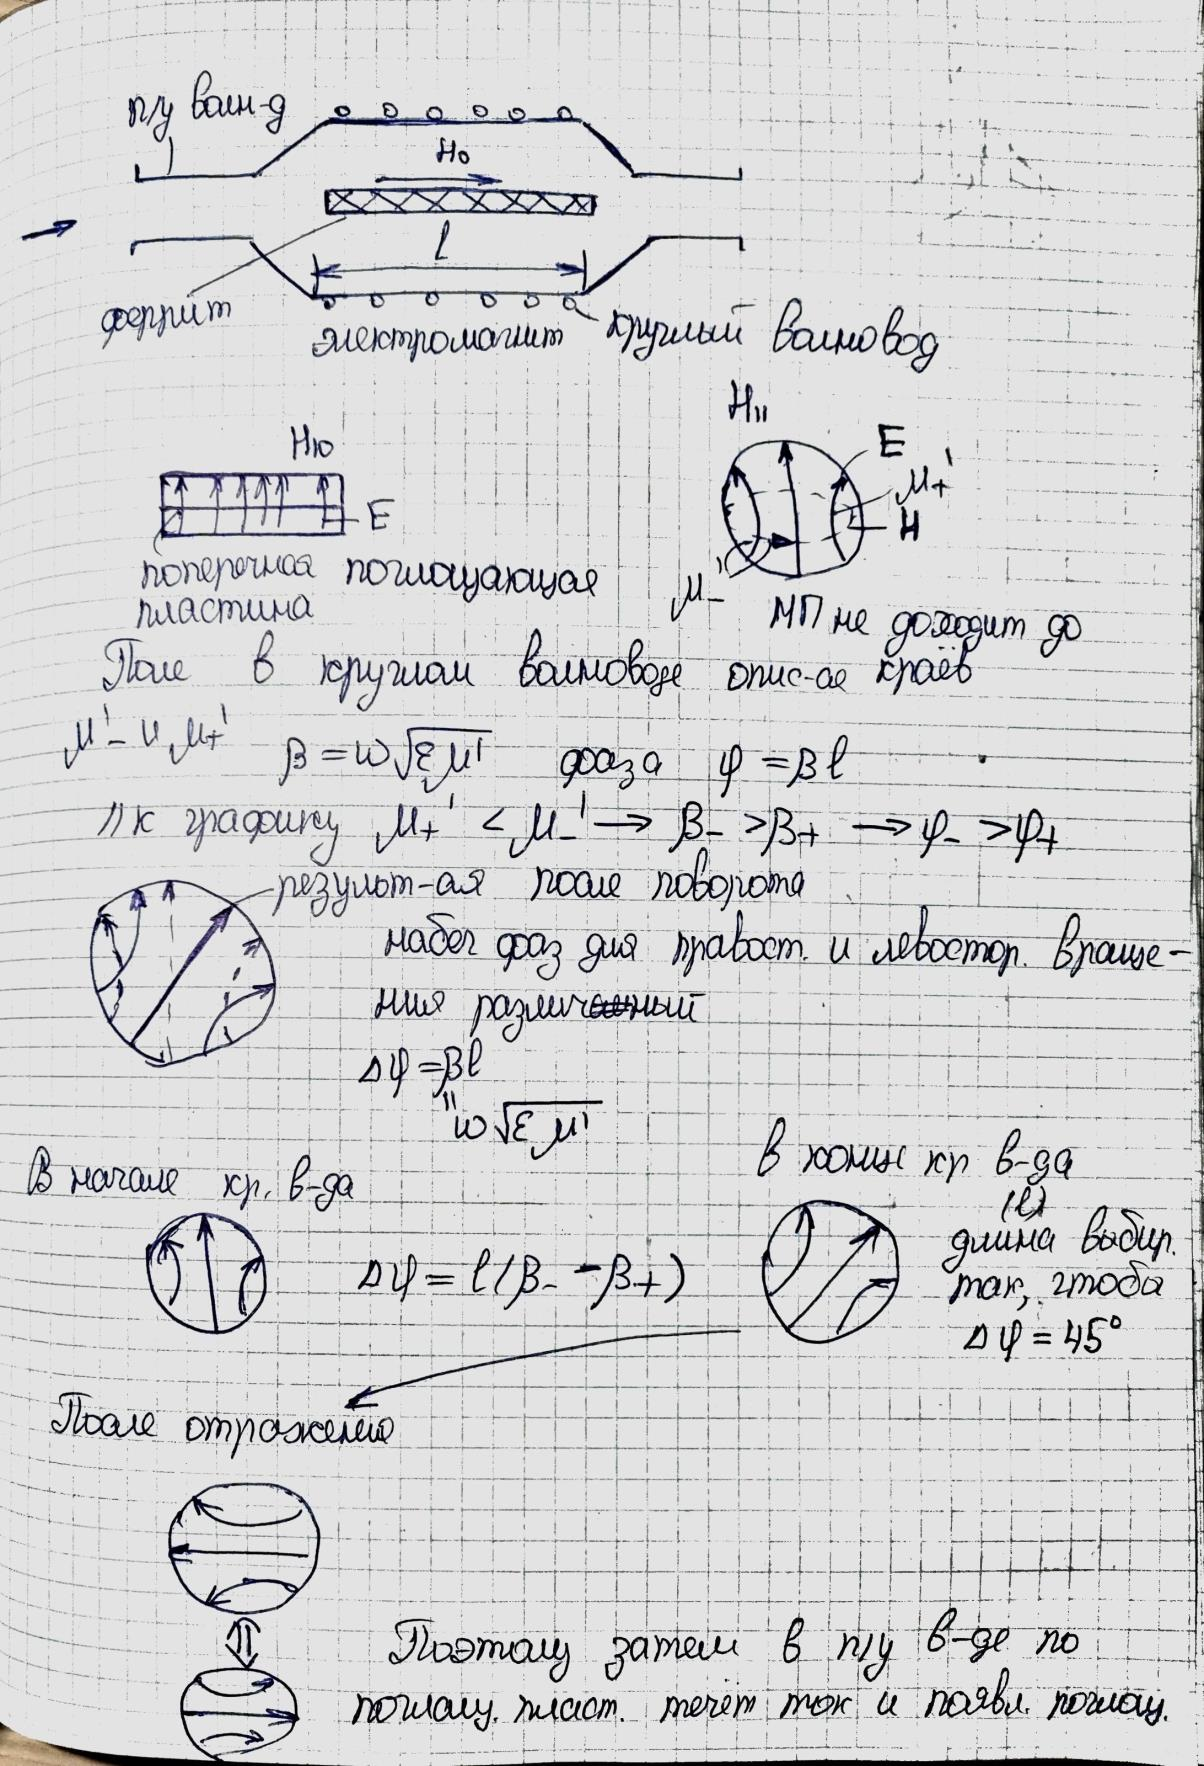 п/у волн-д
H₀
l
феррит
электромагнит
круглый волновод
H₁₀
E
поперечная поглощающая
пластина
H₁₁
E
μ₊'
H
μ₋'
МП не доходит до
краёв
Поле в круглом волноводе опис-ое
μ'₋ и μ₊'
β = ω√εμ' фаза φ = βl
// к графику μ₊' < μ₋' → β₋ > β₊ → φ₋ > φ₊
результ-ая после поворота
набег фаз для правост. и левостор. враще-
ния различный
Δφ = βl
" ω√εμ'
В начале кр. в-да
Δφ = l(β₋ - β₊)
в конце кр в-да
(l)
длина выбир.
так, чтобы
Δφ = 45°
После отражения
Поэтому затем в п/у в-де по
поглощ. пласт. течёт ток и появл. поглощ.